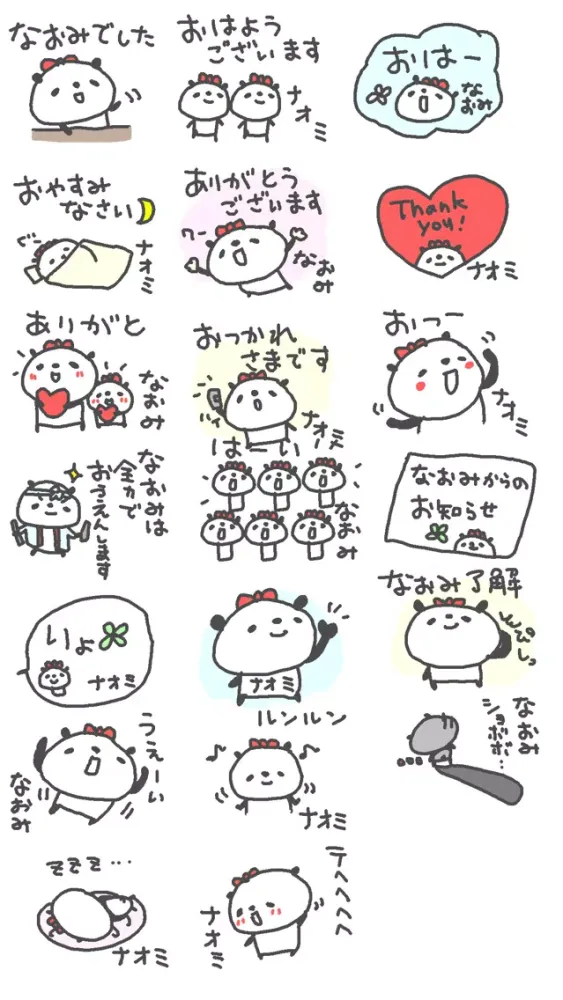 なおみでした
おはよう
ございます
ナオミ
おはー
なおみ
おやすみ
なさい
ぐー
ナオミ
ありがとう
ございます
ワー
なおみ
Thank
you!
ナオミ
ありがと
なおみ
おつかれ
さまです
ナオミ
おつー
ナオミ
なおみは
全力で
おうえんします
はーい
なおみ
なおみからの
お知らせ
りょ
ナオミ
ナオミ
なおみ了解
うぇーい
なおみ
ルンルン
ナオミ
なおみ
ショボボ…
zzz…
ナオミ
テヘヘヘヘ
ナオミ